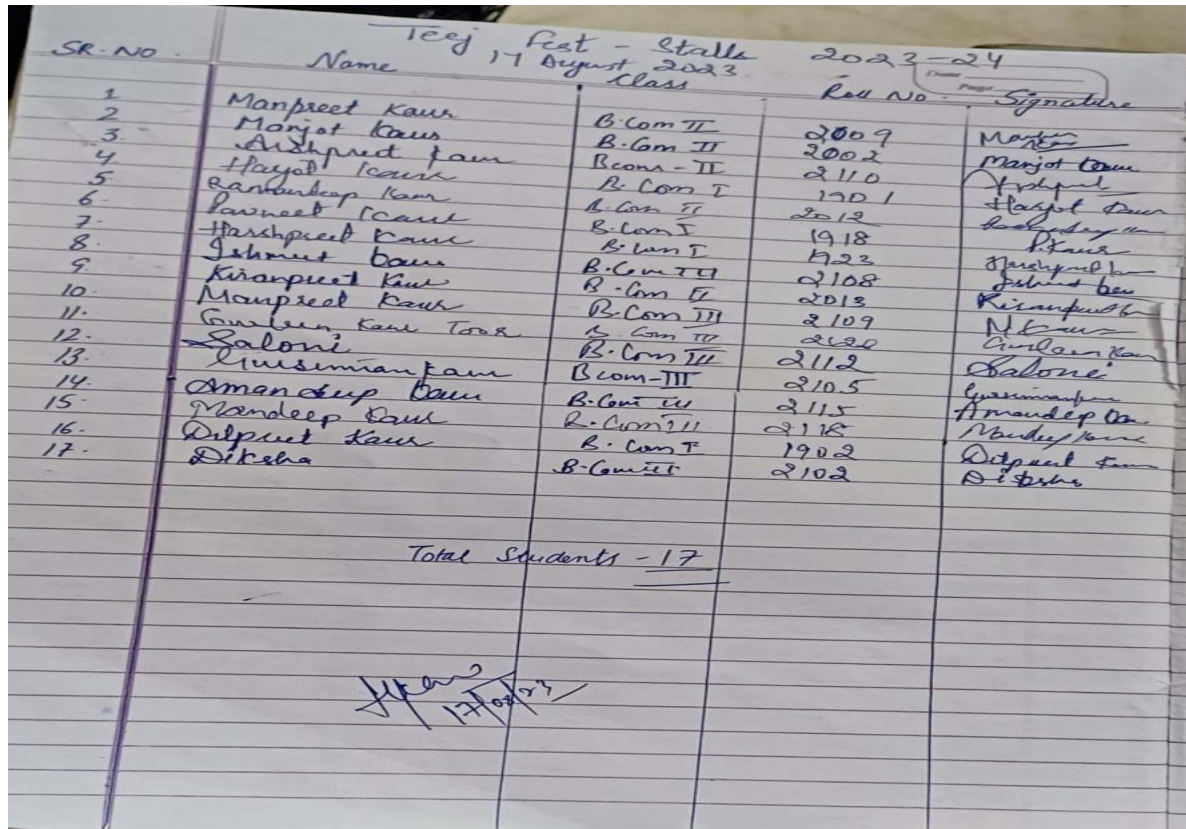 Teej Fest - Stalls 2023-24
17 August 2023
SR. NO. Name Class Roll No. Signature
1 Manpreet Kaur B.Com II 2009
2 Manjot Kaur B.Com II 2002 Manjot Kaur
3. Arshpreet Kaur Bcom - II 2110 Arshpreet
4. Harjot Kaur B.Com I 1901 Harjot Kaur
5. Ramandeep Kaur B.Com II 2012
6. Pavneet Kaur B.Com I 1918 P.Kaur
7. Harshpreet Kaur B.Com I 1922
8. Ishmeet Kaur B.Com III 2108
9. Kiranpreet Kaur B.Com II 2013
10. Manpreet Kaur B.Com III 2109
11. Gurleen Kaur Toor B.Com III Gurleen Kaur
12. Saloni B.Com III 2112 Saloni
13. Gursimran Kaur Bcom-III 2105
14. Amandeep Kaur B.Com III 2115 Amandeep Kaur
15. Mandeep Kaur B.Com III 2118 Mandeep Kaur
16. Dilpreet Kaur B.Com I 1902 Dilpreet Kaur
17. Diksha B.Com III 2102 Diksha
Total Students - 17
17/08/23